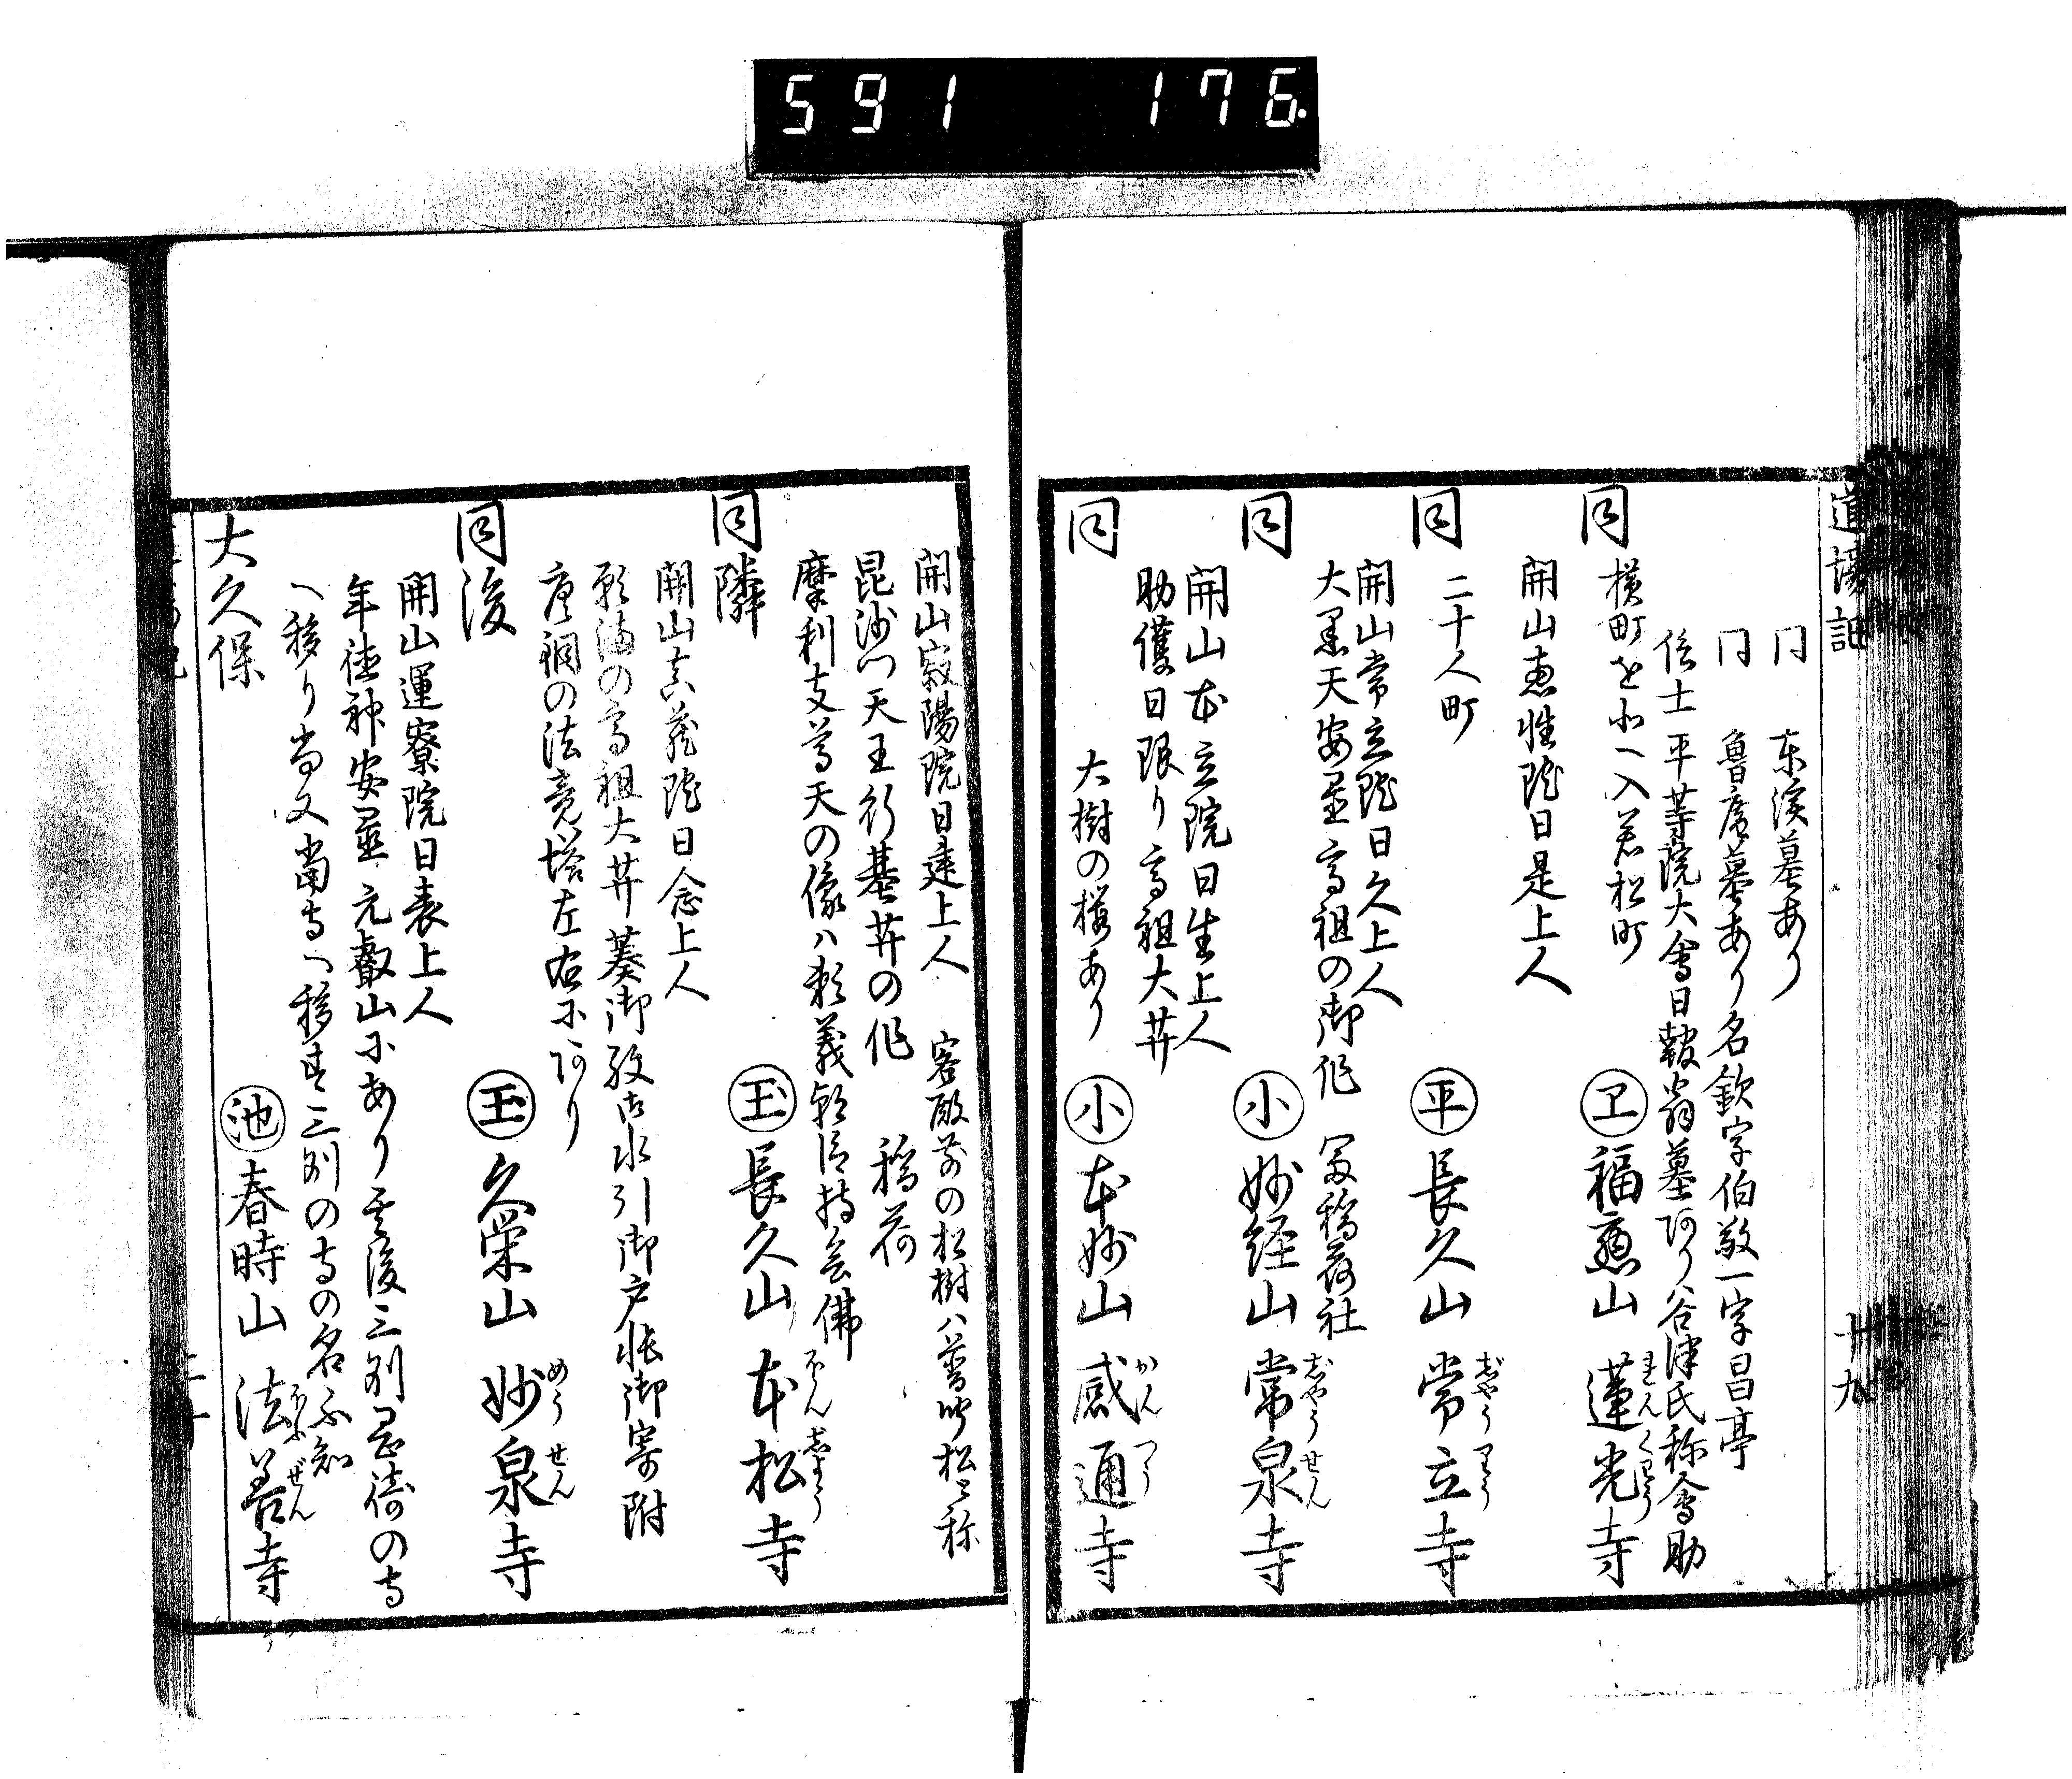 591 176
道場記
十九
同 東漢墓あり
同 魯庵墓あり名欽字伯敬一字昌亭
信士 平等院大會日報翁墓阿り谷津氏称會助
同 横町を北へ入若松町 ヱ 福 山 蓮光寺 れんくわう
開山恵性院日是上人
同 二十人町 平 長久山 常立寺 じやうりう
開山常立院日久上人
大黒天安置高祖の御作 冨稲荷社
同 小 妙経山 常泉寺 じやうせん
開山本立院日生上人
助護日限り高祖大井
同 大樹の桜あり 小 本妙山 感通寺 かんつう
開山寂陽院日建上人 客殿前の松樹ハ
昆沙門天王行基井の作 稲荷
摩利支尊天の像ハ 義 持念佛
同隣 玉 長久山 本松寺 ほんしよう
開山 院日念上人
願満の高祖大井葵御紋古水引御戸帳御寄附
唐銅の法 塔左右に阿り
同後 玉 久栄山 妙泉寺 めうせん
開山運寮院日表上人
年徳神安置元叡山にあり其後三州 の寺
へ移り尚又當寺へ移す三州の寺の名不知
大久保 池 春時山 法善寺 ほふぜん